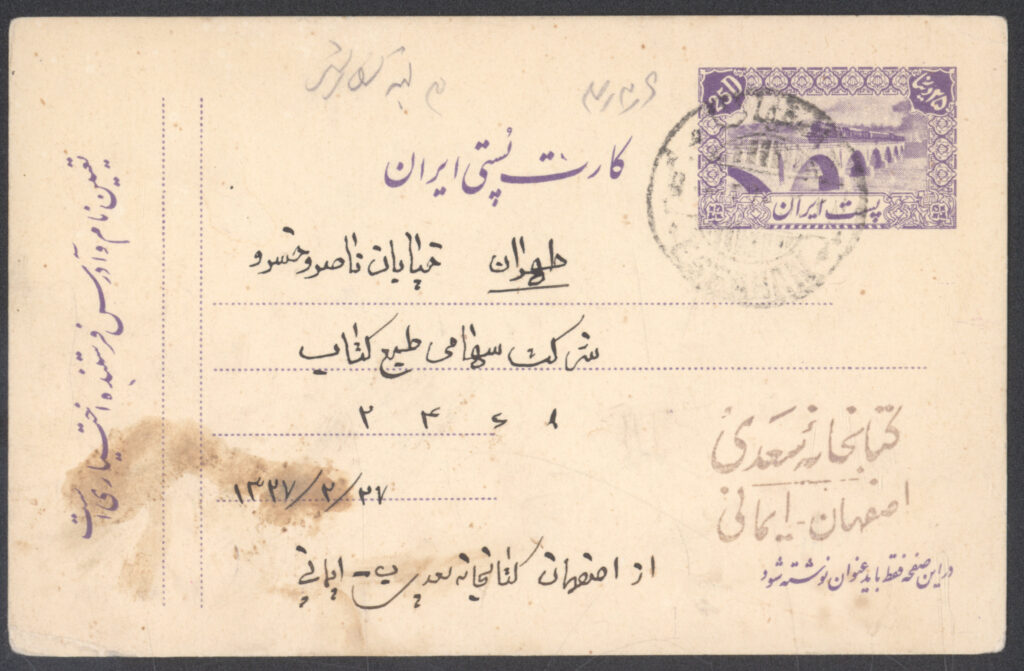 25D
۲۵ دینار
پست ایران
کارت پستی ایران
طهران خیابان ناصرخسرو
شرکت سهامی طبع کتاب
۲ ۴ ۶ ۸
۱۳۲۷/۲/۲۷
از اصفهان کتابخانه سعدی - ایمانی
کتابخانهٔ سعدی
اصفهان - ایمانی
در این صفحه فقط باید عنوان نوشته شود
تعیین نام و آدرس فرستنده اختیاری است